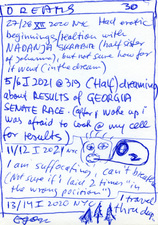 DREAMS 30
27/28 XII 2020 NYC Had erotic
beginnings/
with
(half sister
of
), but not sure how far
it went (in the dream)
5/6 I 2021 @ 319 (Half) dreaming
about RESULTS of GEORGIA
SENATE RACE. (after I woke up I
was afraid to look @ my cell
for results)
11/12 I 2021 NYC
I am suffocating, can't breathe
(not sure if I laid 2 times in
the wrong position)
13/14 I 2020 NYC I travel
thru day